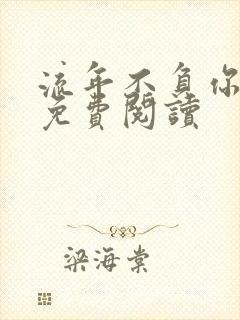 流年不負你
免費閱讀
梁海棠